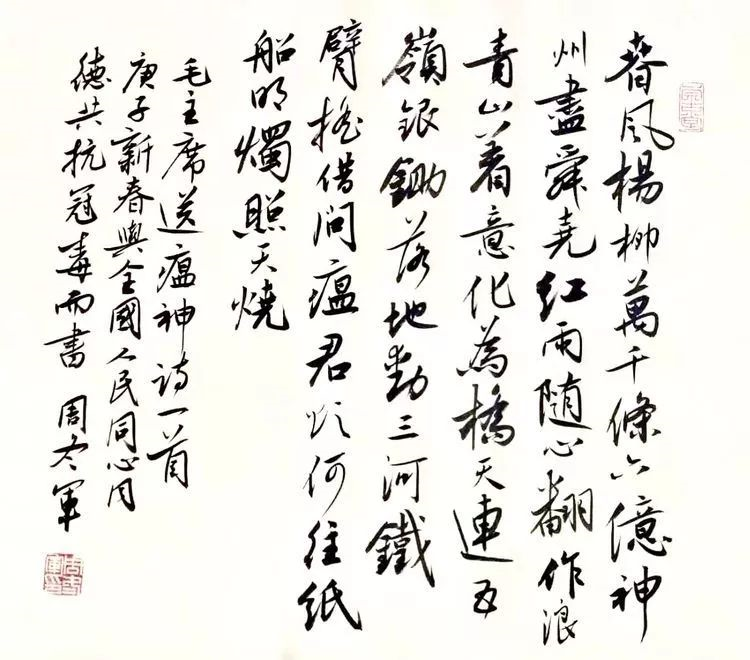 春风楊柳萬千條六億神
州盡舜堯红雨随心翻作浪
青山着意化為橋天連五
嶺銀鋤落地動三河鐵
臂摇借问瘟君欲何往纸
船明燭照天燒
毛主席送瘟神诗一首
庚子新春與全國人民同心同
德共抗冠毒而書 周冬軍